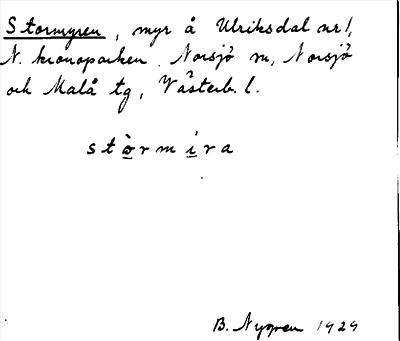 Stormyren, myr å Ulriksdal nr 1,
N. kronoparken. Norsjö sn, Norsjö
och Malå tg, Västerb. l.
stòrmìra
B. Nygren 1929